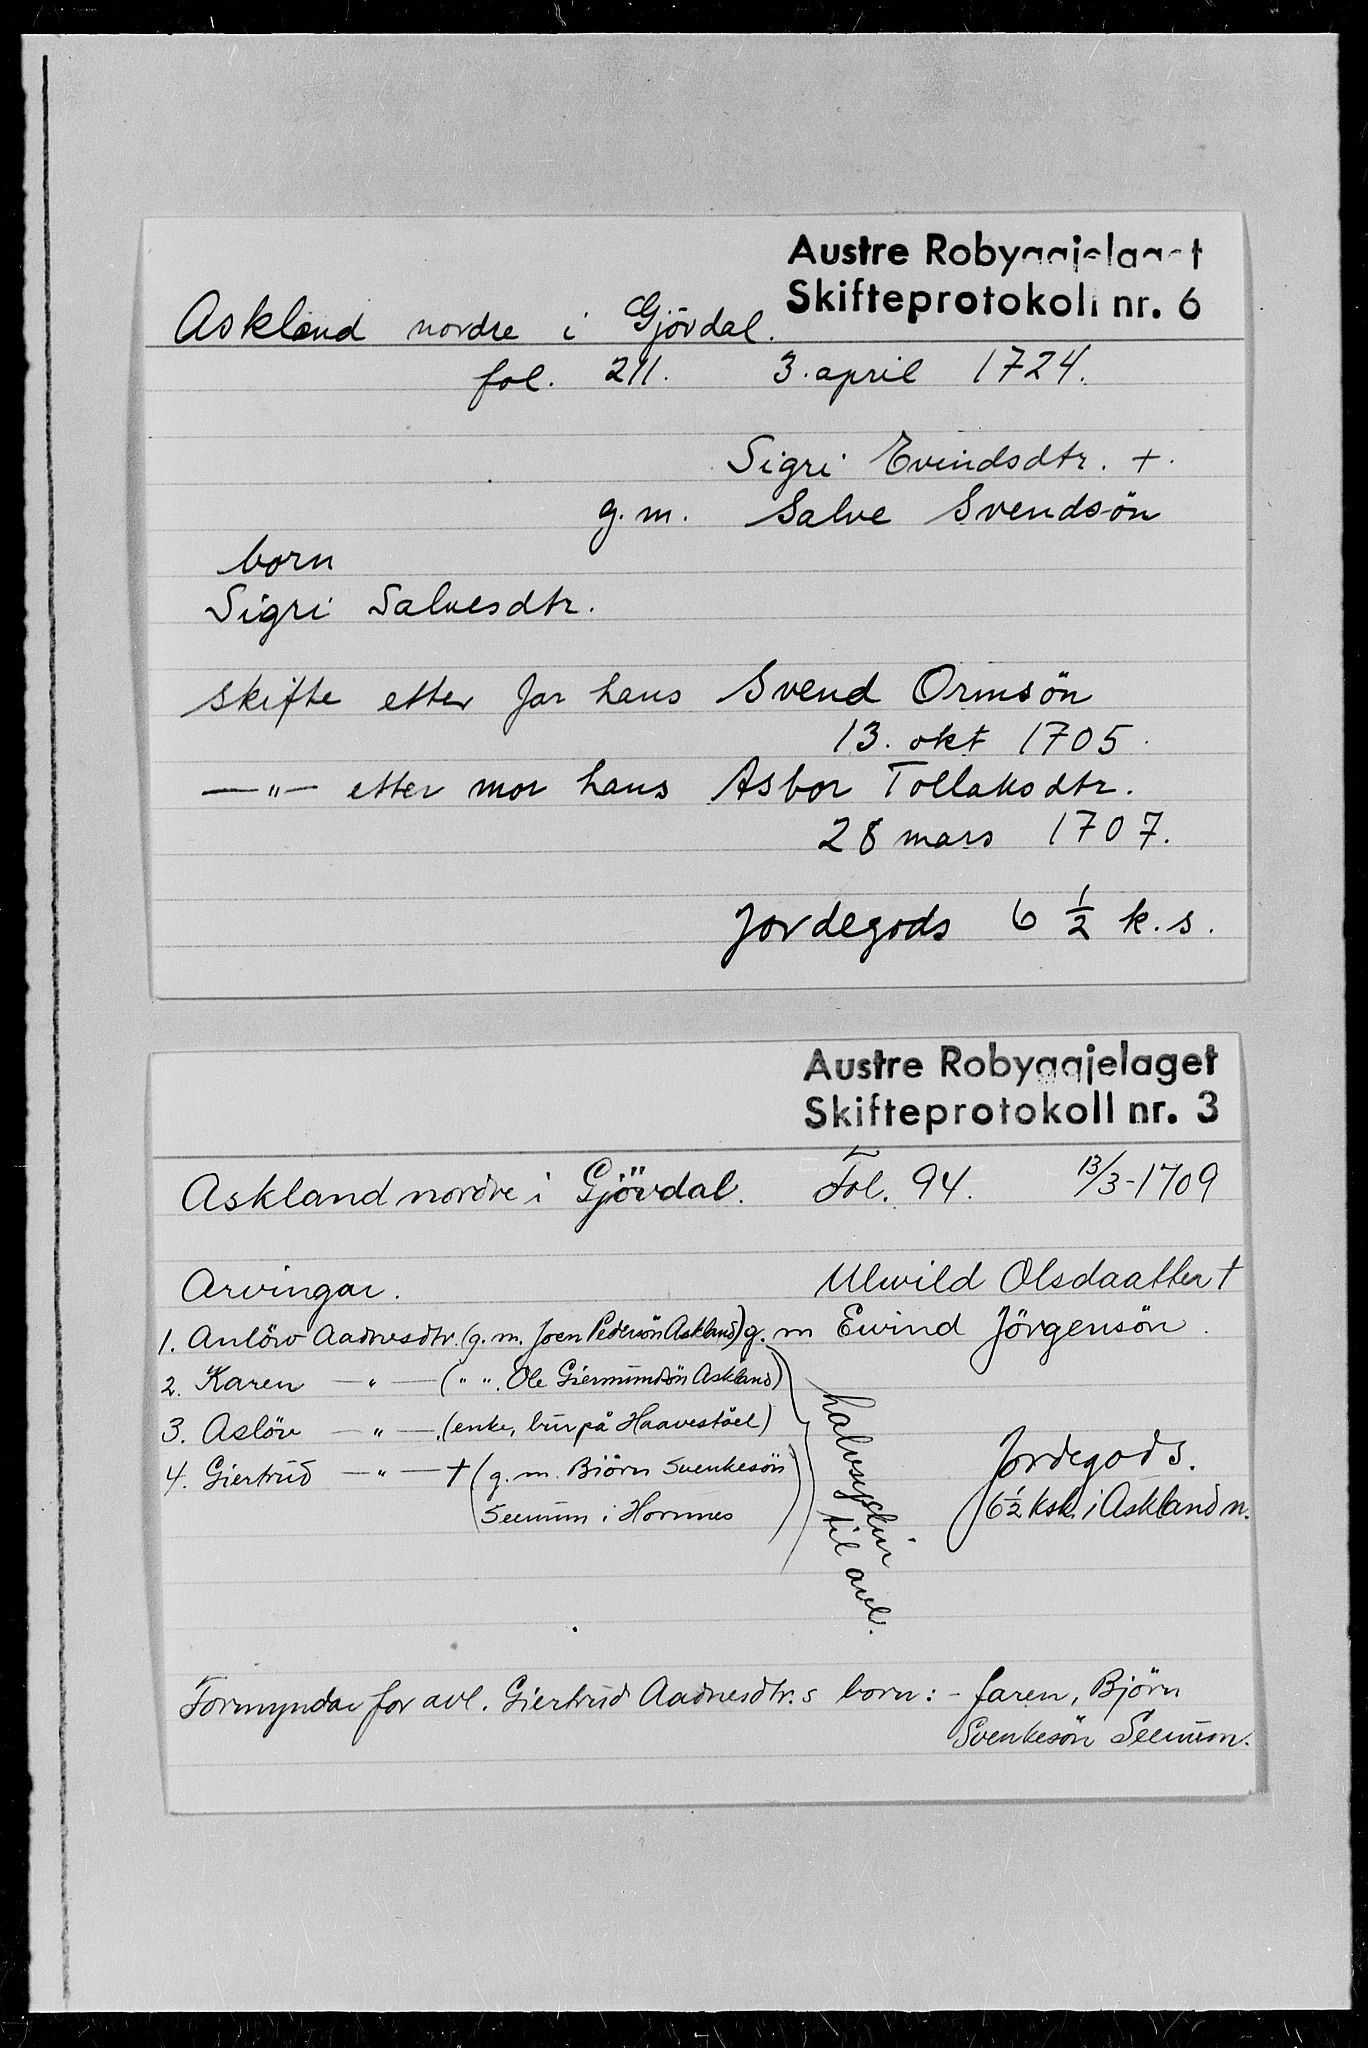 Austre Robyggjelaget
Skifteprotokoll nr. 6
Askland nordre i Gjövdal.
fol. 211. 3. april 1724.
Sigri Evindsdtr. +.
g. m. Salve Svendsön
born
Sigri Salvesdtr.
skifte etter far hans Svend Ormsön
13. okt 1705.
—"— etter mor hans Asbor Tollaksdtr.
28 mars 1707.
Jordegods 6 ½ k. s.
Austre Robyggjelaget
Skifteprotokoll nr. 3
Askland nordre i Gjövdal. Fol. 94. 13/3-1709
Arvingar. Ulvild Olsdaatter †
1. Anlöw Aadnesdtr. (g. m. Joen Pedersön Askland) g. m Eivind Jörgensön.
2. Karen —"— (" ". Ole Giermundsön Askland)
3. Aslöw —"—. (enke, bur på Haavestöel)
4. Giertrud —"— † (g. m. Biörn Svenkesön
Seeuum i Hornnes)
halvsyskin
til avl.
Jordegods.
(6½ ksk. i Askland n.
Formyndar for avl. Giertrud Aadnesdtr.s born: - faren, Björn
Svenkesön Seeuum.